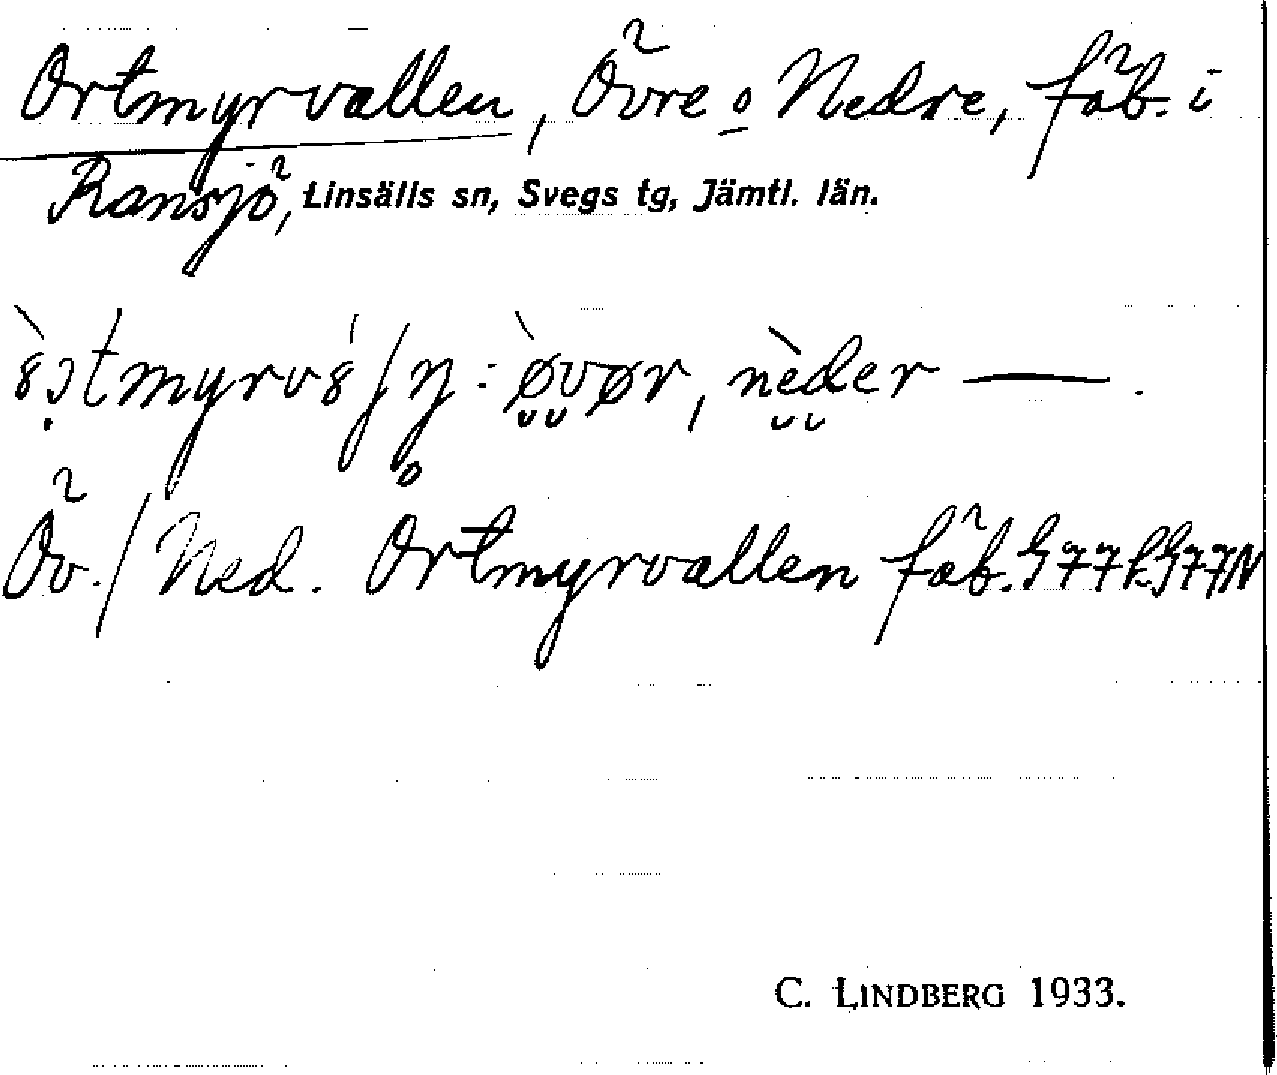 Ortmyrvallen, Övre o Nedre, fäb. i
Ransjö, Linsälls sn, Svegs tg, Jämtl. län.
øvør, neder — .
Öv./Ned. Ortmyrvallen fäb.
C. LINDBERG 1933.